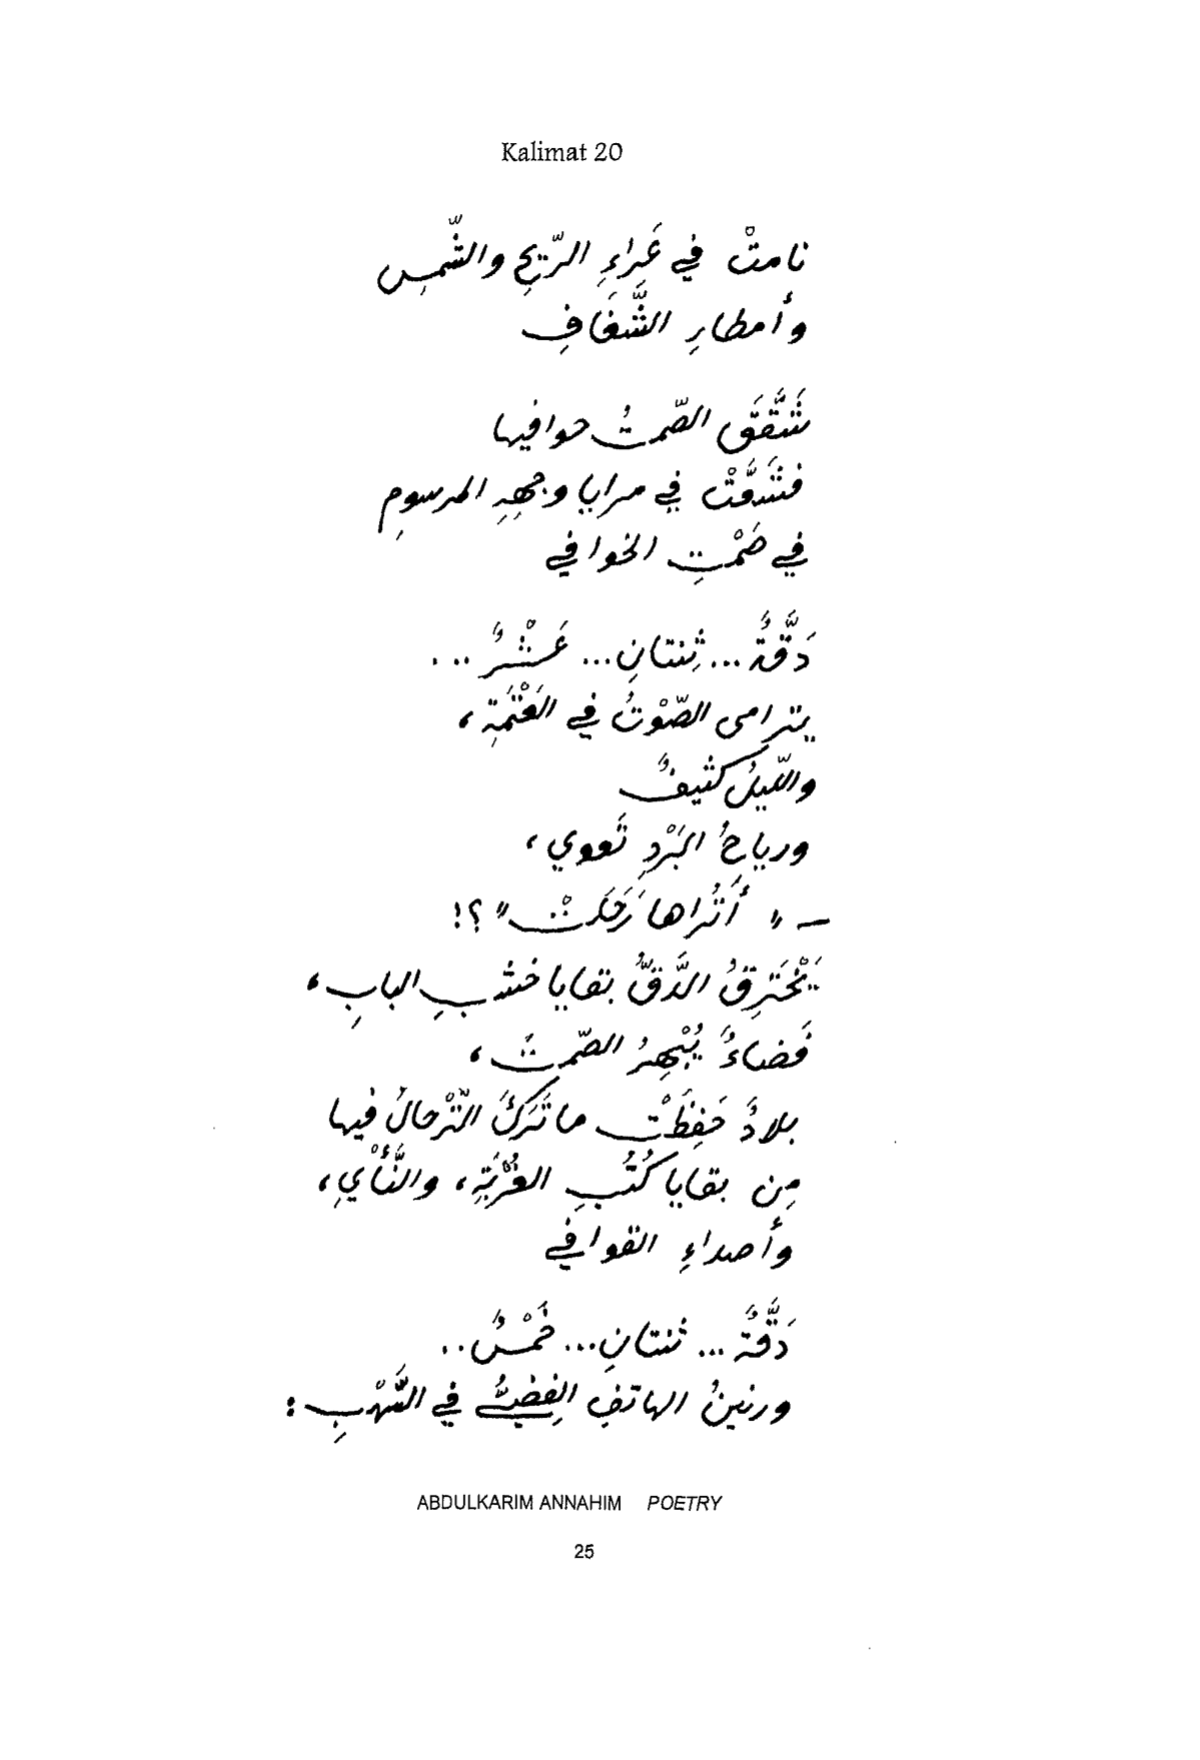 Kalimat 20
نامتْ في عَراءِ الرّيحِ والشّمسِ
وأمطارِ الشَّغَافِ
شَقَّقَ الصّمتُ حوافيها
فشَفَّتْ في مرايا وجهِهِ المرسومِ
في صَمْتِ الخوافي
دَقَّةٌ... ثِنتانِ... عَشْرٌ...
يترامى الصّوْتُ في العَتْمَةِ،
واللّيلُ كثيفٌ
ورياحُ البَرْدِ تَعوي،
– " أَتُراها رَحَلَتْ " ؟!
يَخْتَرِقُ الدَّقُّ بقايا خشبِ البابِ،
فَضاءٌ يُبْهِرُ الصّمتَ،
بلادٌ حَفِظَتْ ما تَرَكَ التّرْحالُ فيها
مِن بقايا كُتُبِ الغُرْبَةِ، والنَّأْيِ،
وأصداءِ القوافي
دَقَّةٌ... ثنتانِ... خَمْسٌ..
ورنينُ الهاتفِ الفِضّيُّ في السَّهْبِ:
ABDULKARIM ANNAHIM POETRY
25